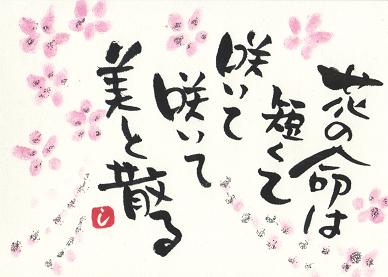 花の命は
短くて
咲いて
咲いて
美と散る
し